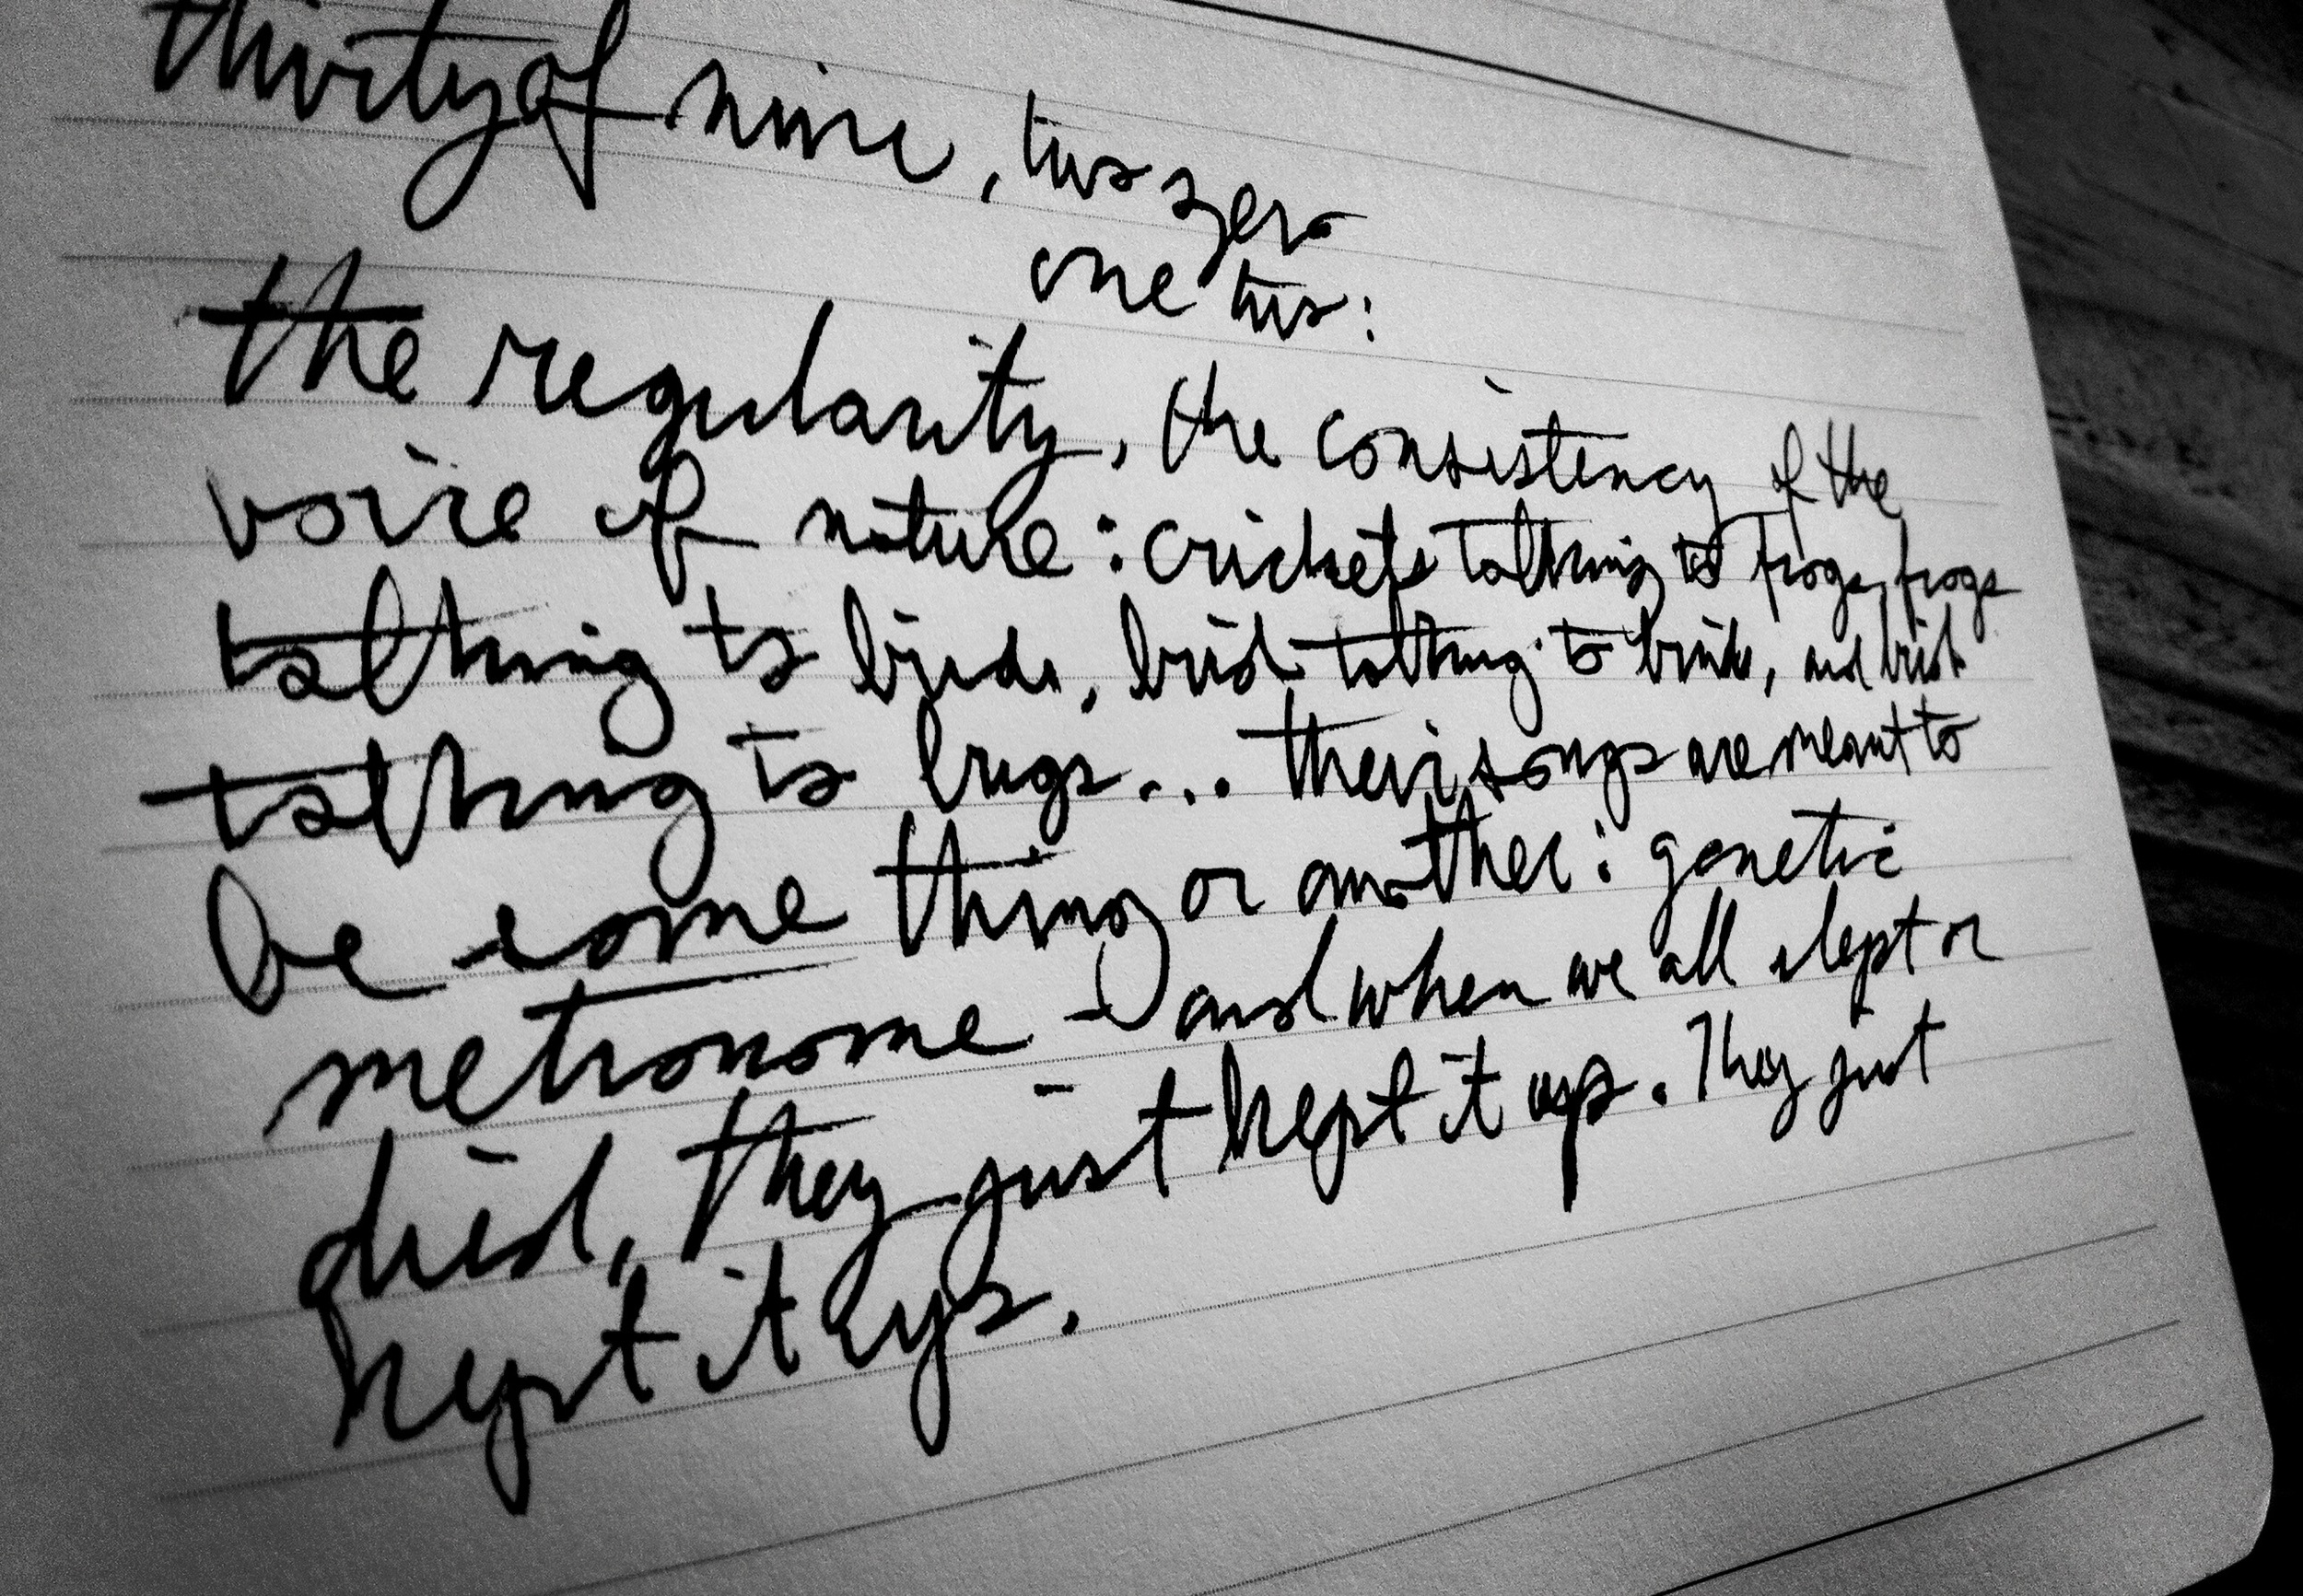 thirty of nine, two zero
one two:
the regularity, the consistency of the
voice of nature: crickets talking to frogs, frogs
talking to birds, birds talking to birds, and birds
talking to bugs... their songs are meant to
be some thing or another: genetic
metronome - and when we all slept or
died, they just kept it up. They just
kept it up.